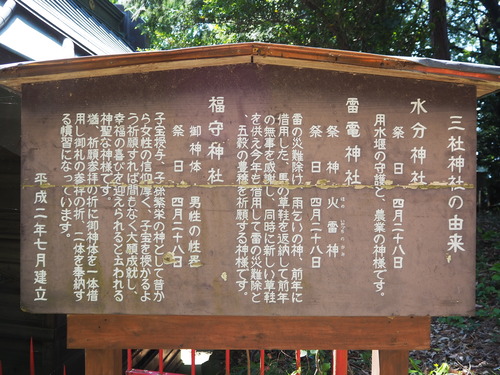 三社神社の由来
水分神社
祭 日 四月二十八日
用水堰の守護と、農業の神様です。
雷電神社
祭 神 火雷神
祭 日 四月二十八日
雷の災難除け、雨乞いの神、前年に
借用した、馬の草鞋を返納して前年
の無事を感謝し、同時に新しい草鞋
を供え今年も借用して雷の災難除と
、五穀の豊穣を祈願する神様です。
福守神社
祭 日 四月二十八日
御神体 男性の性器
子宝授与、子孫繁栄の神として昔か
ら女性の信仰厚く、子宝を授かるよ
う祈願すれば間もなく大願成就し、
幸福の喜びを迎えられると云われる
神聖な神様です。
猶、祈願参拝の折に御神体を一体借
用し御礼の参拝の折、二体を奉納す
る慣習になっています。
平成二年七月建立